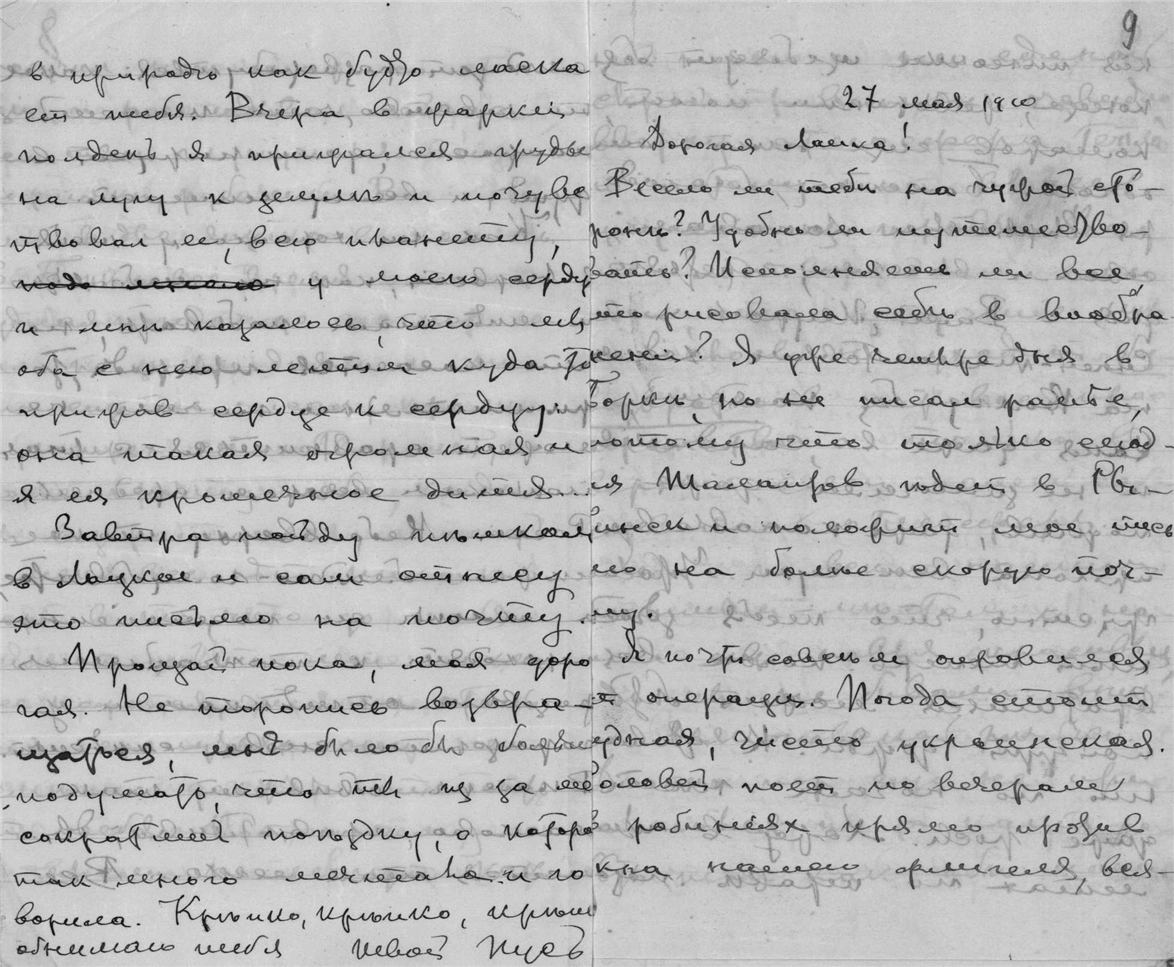 в природѣ, как будто ласка
ет тебя. Вчера в жаркий
полдень я прижался грудью
на лугу к землѣ и почувс
твовал ее, всю планету,
у моего сердца
и мнѣ казалось, что мы
оба с нею летим куда то
прижав сердце к сердцу:
она такая огромная и
я ея крошечное дитя...
Завтра пойду пѣшком
в Лацкое и сам отнесу
это письмо на почту.
Прощай пока, моя доро
гая. Не торопись возвра-
щаться, мнѣ было бы больно
подумать, что ты из за
сократишь поѣздку, о которой
так много мечтала и го
ворила. Крѣпко, крѣпко, крѣпко
обнимаю тебя Твой Гусь
9
27 мая 1910
Дорогая Ласка!
Весело ли тебѣ на чужой сто-
ронѣ? Удобно ли путешество-
вать? Исполняешь ли все,
что рисовала себѣ в вообра
жении? Я уже четыре дня в
Боркѣ, но не писал ранѣе,
потому что только сегод-
ня едет в Ры-
бинск и положит мое пись
мо на болѣе скорую поч-
ту.
Я почти совсѣм оправился
от операции. Погода стоит
чудная, чисто украинская.
Соловей поет по вечерам
в робиниях прямо против
окна нашего флигеля, вся-